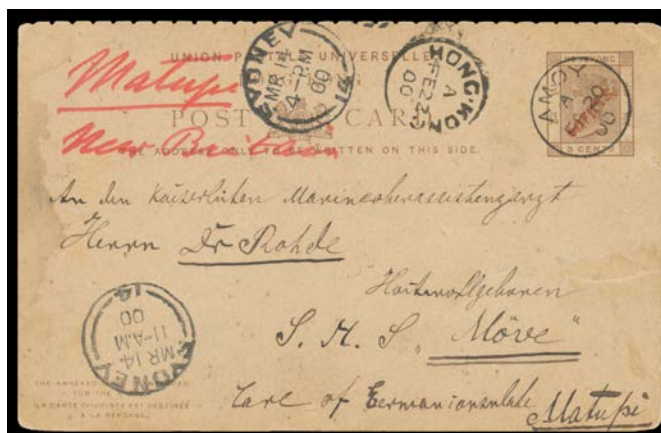 UNION POSTALE UNIVERSELLE
Matupi
New Britain
POST CARD
THE ADDRESS ONLY TO BE WRITTEN ON THIS SIDE.
SYDNEY
MR 14
4-PM
00
14
HONG-KONG
A
FE 22
00
AMOY
A
FE 20
00
HONG KONG
3 CENTS
An den Kaiserlichen Marineoberassistenzarzt
Herrn Dr Rohde
Hochwohlgeboren
S. M. S. „Möve"
Care of German Consulate Matupi
SYDNEY
MR 14
11-AM
00
14
THE ANNEXED
FOR THE
LA CARTE CI-JOINTE EST DESTINÉE
A LA RÉPONSE.